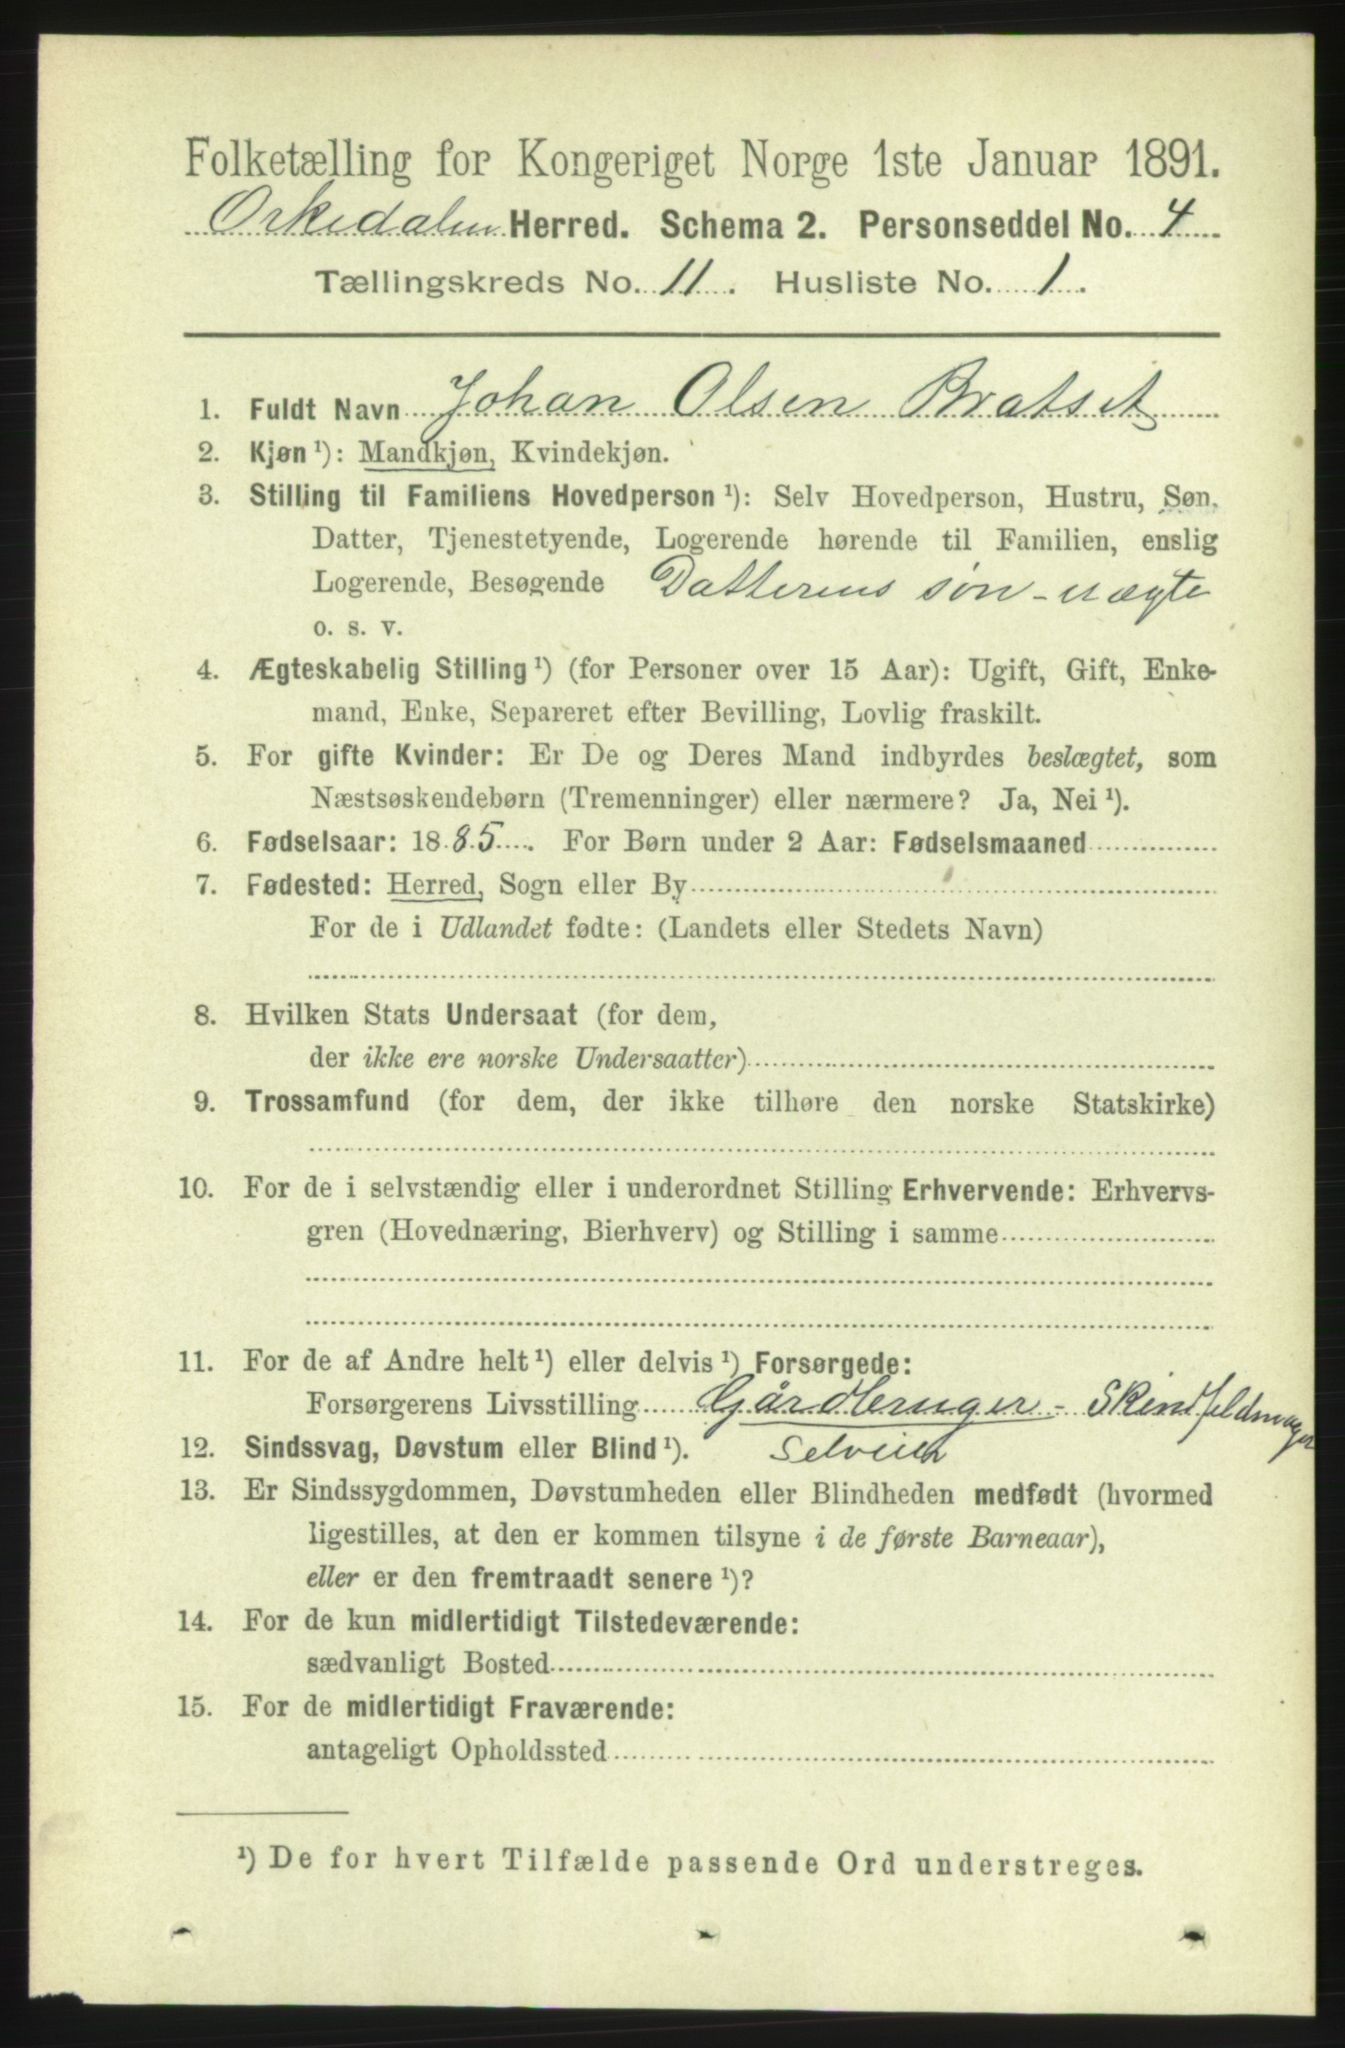 Folketælling for Kongeriget Norge 1ste Januar 1891.
Orkedalen Herred. Schema 2. Personseddel No. 4
Tællingskreds No. 11. Husliste No. 1.
1. Fuldt Navn Johan Olsen Bratset
2. Kjøn ¹): Mandkjøn, Kvindekjøn.
3. Stilling til Familiens Hovedperson ¹): Selv Hovedperson, Hustru, Søn,
Datter, Tjenestetyende, Logerende hørende til Familien, enslig
Logerende, Besøgende Datterens søn - uægte
o. s. v.
4. Ægteskabelig Stilling ¹) (for Personer over 15 Aar): Ugift, Gift, Enke-
mand, Enke, Separeret efter Bevilling, Lovlig fraskilt.
5. For gifte Kvinder: Er De og Deres Mand indbyrdes beslægtet, som
Næstsøskendebørn (Tremenninger) eller nærmere? Ja, Nei ¹).
6. Fødselsaar: 1885. For Børn under 2 Aar: Fødselsmaaned
7. Fødested: Herred, Sogn eller By
For de i Udlandet fødte: (Landets eller Stedets Navn)
8. Hvilken Stats Undersaat (for dem,
der ikke ere norske Undersaatter)
9. Trossamfund (for dem, der ikke tilhøre den norske Statskirke)
10. For de i selvstændig eller i underordnet Stilling Erhvervende: Erhvervs-
gren (Hovednæring, Bierhverv) og Stilling i samme
11. For de af Andre helt ¹) eller delvis ¹) Forsørgede:
Forsørgerens Livsstilling Gårdbruger - Skindfeldmager
12. Sindssvag, Døvstum eller Blind ¹). Selveier
13. Er Sindssygdommen, Døvstumheden eller Blindheden medfødt (hvormed
ligestilles, at den er kommen tilsyne i de første Barneaar),
eller er den fremtraadt senere ¹)?
14. For de kun midlertidigt Tilstedeværende:
sædvanligt Bosted
15. For de midlertidigt Fraværende:
antageligt Opholdssted
¹) De for hvert Tilfælde passende Ord understreges.